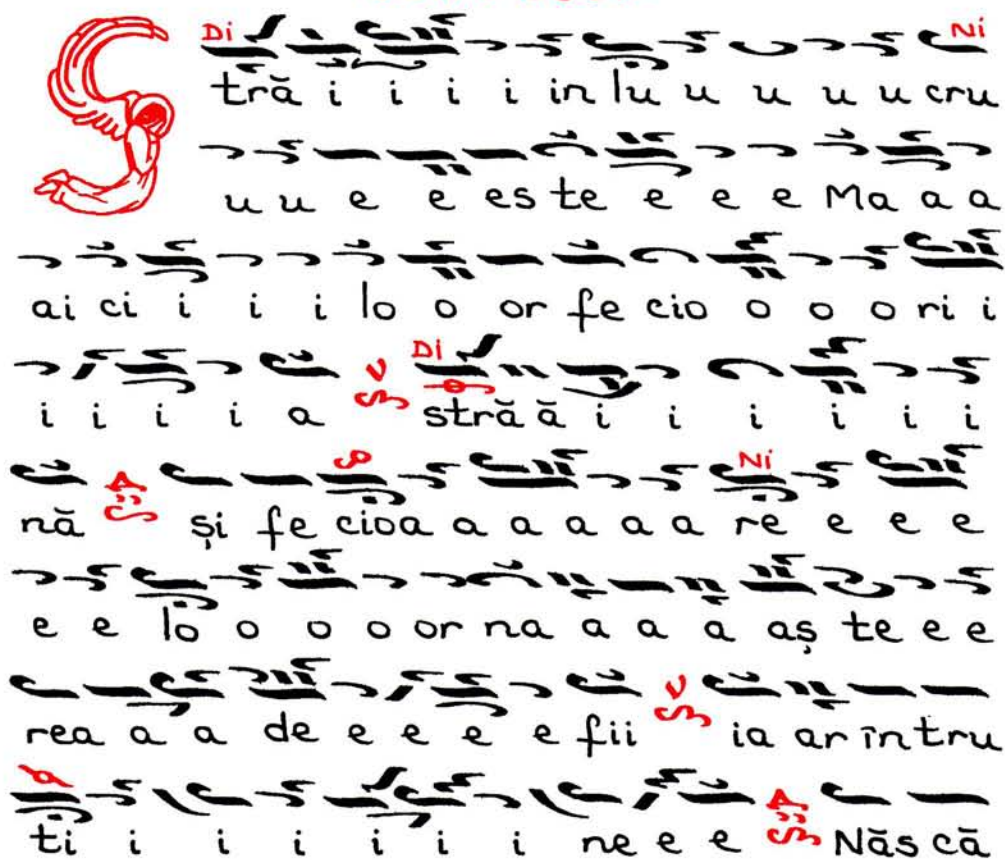 Di Ni
S tră i i i i in lu u u u u u cru
u u e e es te e e e Ma a a
ai ci i i i lo o or fe cio o o o ri i
Di
i i i i a stră ă i i i i i i
Ni
nă și fe cioa a a a a a re e e e
e e lo o o o or na a a a aș te e e
rea a a de e e e e fii ia ar în tru
ti i i i i i i ne e e Năs că